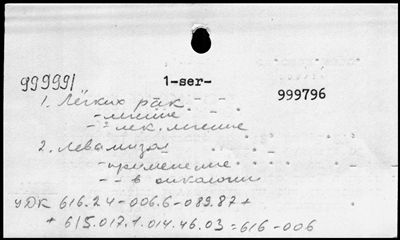 1-ser-
999991
999796
1. Лёгких рак
- лечение
- - лек. лечение
2. Левамизол
- применение
- - в онкологии
УДК 616.24-006.6-089.87 +
+ 615.017.1.014.46.03:616-006